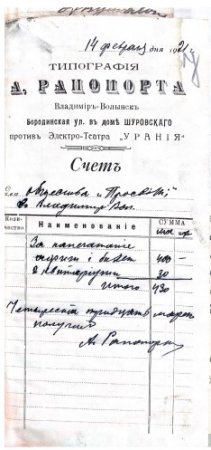 14 февраля дня 1921
ТИПОГРАФІЯ
А. РАПОПОРТА
Владиміръ-Волынскъ
Бородинская ул. въ домѣ ШУРОВСКАГО
противъ Электро-Театра "УРАНІЯ"
Счетъ
и
Владимир Вол.
Количество Наименованіе СУММА
За напечатание
и билет 400
2 квитанции 30
итого 430
Четыреста тридцать марок
получил
А. Рапопорт